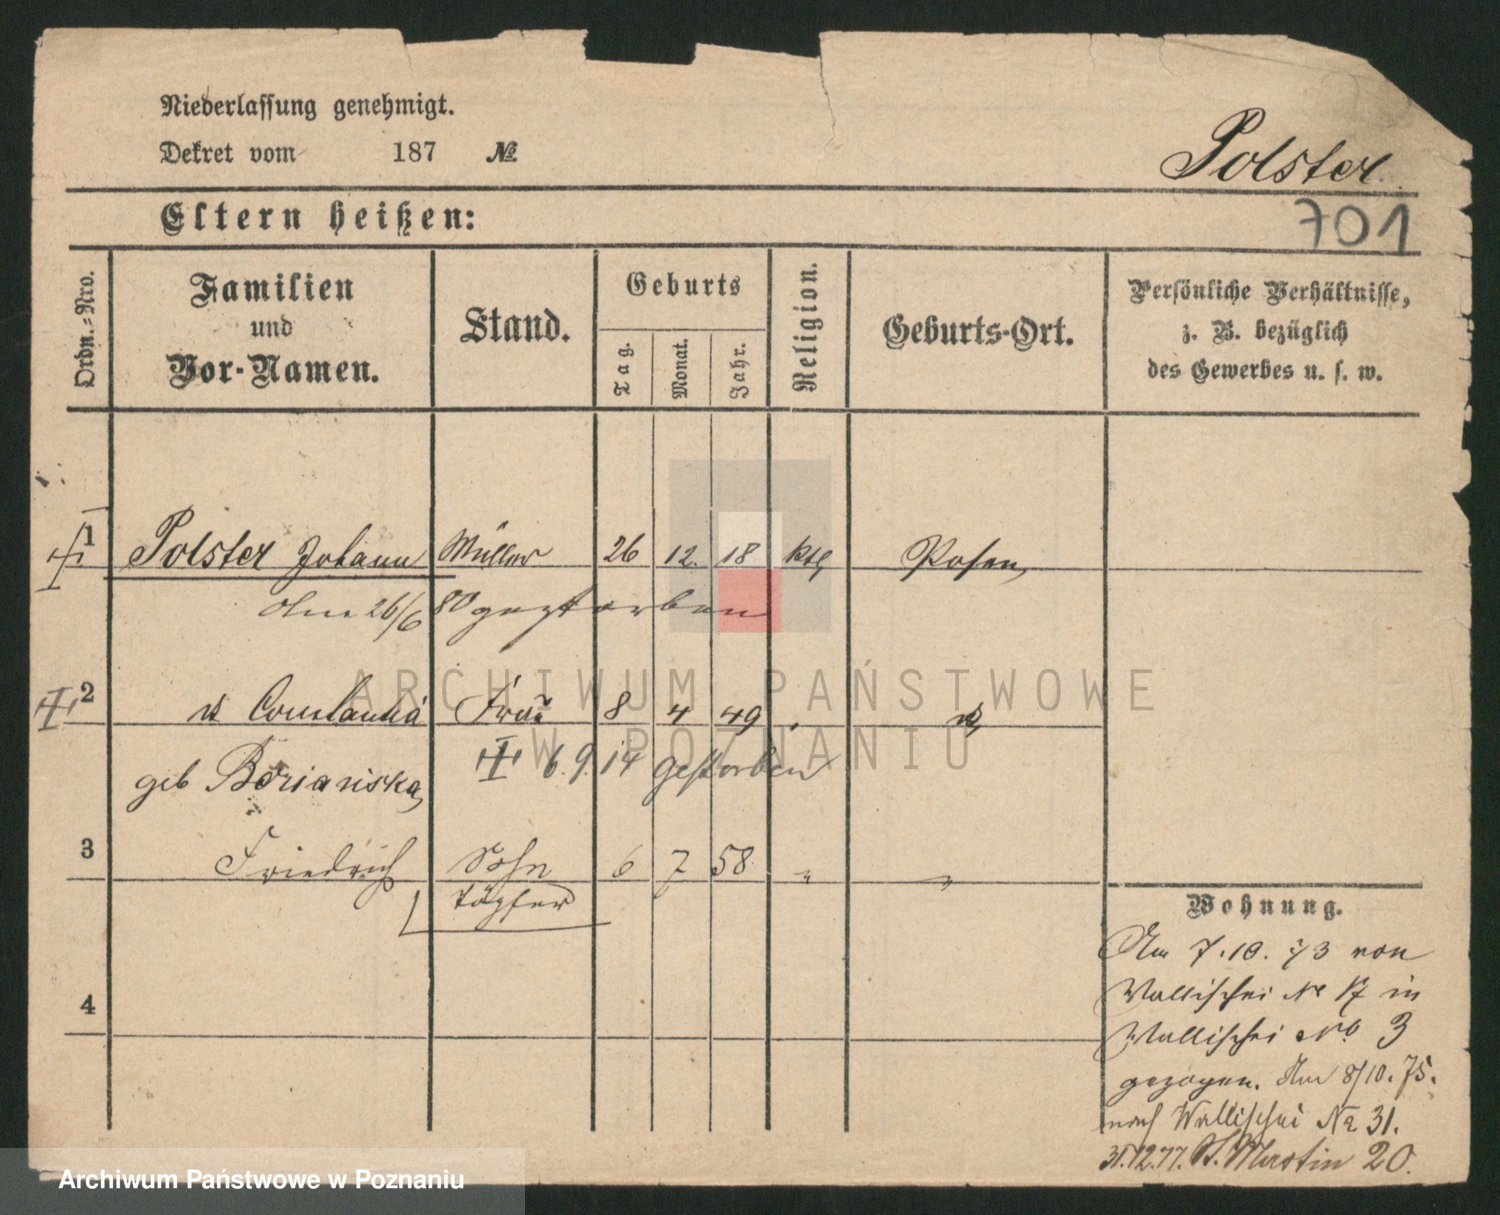 Niederlassung genehmigt.
Dekret vom 187 №
Polster
Eltern heißen:
701
Ordn.-Nro.
Familien und Vor-Namen.
Stand.
Geburts
Tag. Monat. Jahr.
Religion.
Geburts-Ort.
Persönliche Verhältnisse, z. B. bezüglich des Gewerbes u. s. w.
1 Polster Johann Müller 26 12. 18 ktl Posen
26/6 80 gestorben
2 Constantia Frau 8 4 49 "
geb Boriańska 6.9.14 gestorben
3 Friedrich Sohn 6 7 58 " "
Töpfer
4
Wohnung.
Am 7.10.73 von
Wallischei № 17 in
Wallischei No. 3
gezogen. Am 8/10.75.
nach Wallischei № 31.
31.12.77. St. Martin 20.
ARCHIWUM PAŃSTWOWE
W POZNANIU
Archiwum Państwowe w Poznaniu